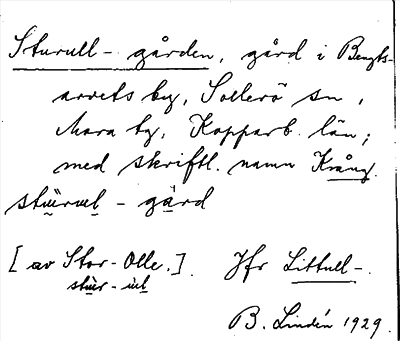 Sturull-gården, gård i Bengts-
arvets by, Sollerö sn,
Mora tg, Kopparb. län;
med skriftl. namn Krång.
stu̬rul̬ - gạ̈rd
[av Stor-Olle.]. Jfr Littull-.
stu̬r - ul̬
B. Lindén 1929.